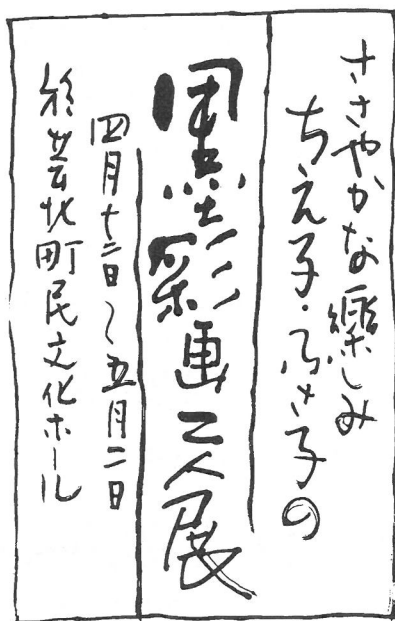 ささやかな樂しみ
ちえ子・ふさ子の
墨彩画二人展
四月十二日〜五月二日
於芸北町民文化ホール